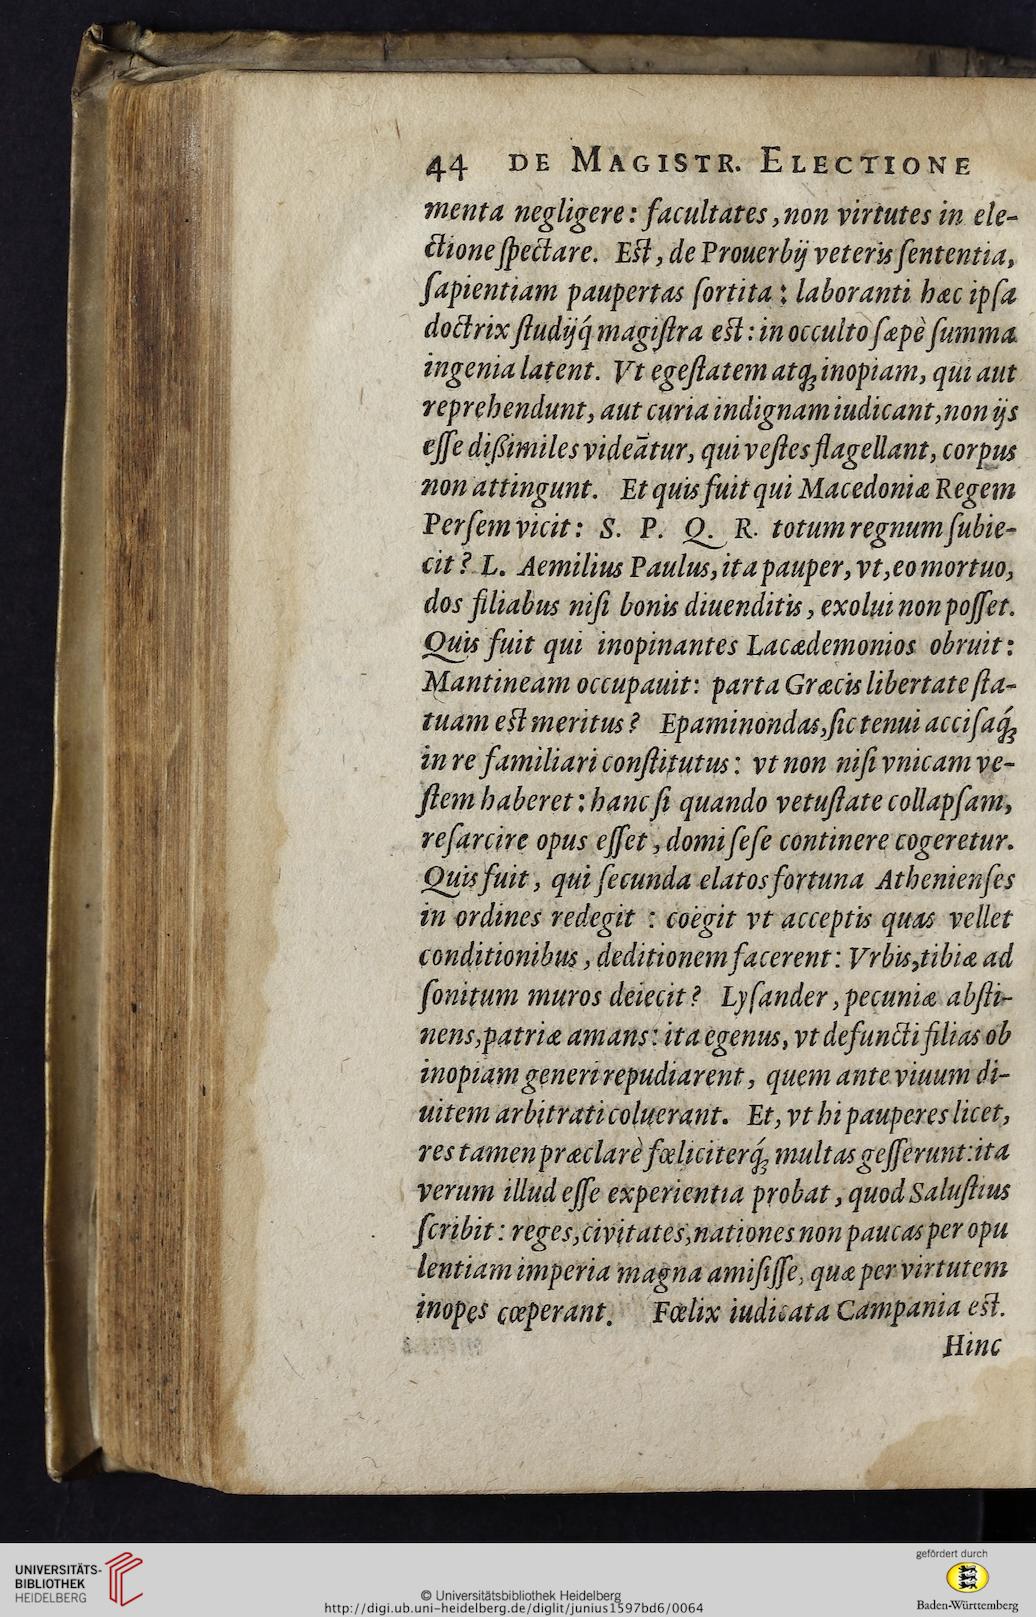 44 DE MAGISTR. ELECTIONE
menta negligere: facultates, non virtutes in ele-
ctione ſpectare. Eſt, de Prouerbij veteris ſententia,
ſapientiam paupertas ſortita: laboranti hæc ipſa
doctrix ſtudijq́ magiſtra eſt: in occulto ſæpè ſumma
ingenia latent. Vt egeſtatem atqꝫ inopiam, qui aut
reprehendunt, aut curia indignam iudicant, non ijs
eſſe dißimiles videātur, qui veſtes flagellant, corpus
non attingunt. Et quis fuit qui Macedoniæ Regem
Perſem vicit: S. P. Q. R. totum regnum ſubie-
cit? L. Aemilius Paulus, ita pauper, vt, eo mortuo,
dos filiabus niſi bonis diuenditis, exolui non poſſet.
Quis fuit qui inopinantes Lacædemonios obruit:
Mantineam occupauit: parta Græcis libertate ſta-
tuam eſt meritus? Epaminondas, ſic tenui acciſaq́ꝫ
in re familiari conſtitutus: vt non niſi vnicam ve-
ſtem haberet: hanc ſi quando vetuſtate collapſam,
reſarcire opus eſſet, domi ſeſe continere cogeretur.
Quis fuit, qui ſecunda elatos fortuna Athenienſes
in ordines redegit: coëgit vt acceptis quas vellet
conditionibus, deditionem facerent: Vrbis, tibiæ ad
ſonitum muros deiecit? Lyſander, pecuniæ abſti-
nens, patriæ amans: ita egenus, vt defuncti filias ob
inopiam generi repudiarent, quem ante viuum di-
uitem arbitrati coluerant. Et, vt hi pauperes licet,
res tamen præclarè fœliciterq́ꝫ multas geſſerunt: ita
verum illud eſſe experientia probat, quod Saluſtius
ſcribit: reges, civitates, nationes non paucas per opu
lentiam imperia magna amiſiſſe, quæ per virtutem
inopes cœperant. Fœlix iudicata Campania eſt.
Hinc
UNIVERSITÄTS-
BIBLIOTHEK
HEIDELBERG
© Universitätsbibliothek Heidelberg
http://digi.ub.uni-heidelberg.de/diglit/junius1597bd6/0064
gefördert durch
Baden-Württemberg